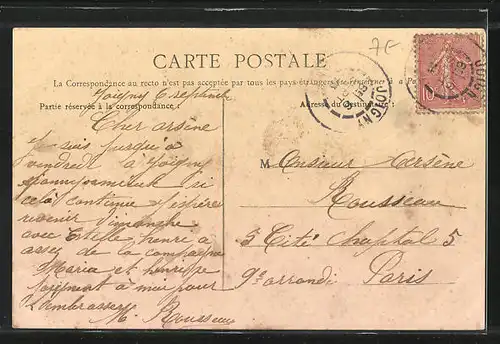 7E
CARTE POSTALE
La Correspondance au recto n'est pas acceptée par tous les pays étrangers (se renseigner à la Po
Joigny
Partie réservée à la correspondance :
Adresse du destinataire :
JOIGNY
10
Cher arsène
je suis jusqu'a
vendredi a Joigny
si
cela continue j'espère
revenir dimanche
avec
assez de la compagne
Maria et henriette
joignent a moi pour
t'embrasser
M. Rousseau
M onsieur Arsène
Rousseau
5 Cité Chaptal 5
9e arrondi Paris